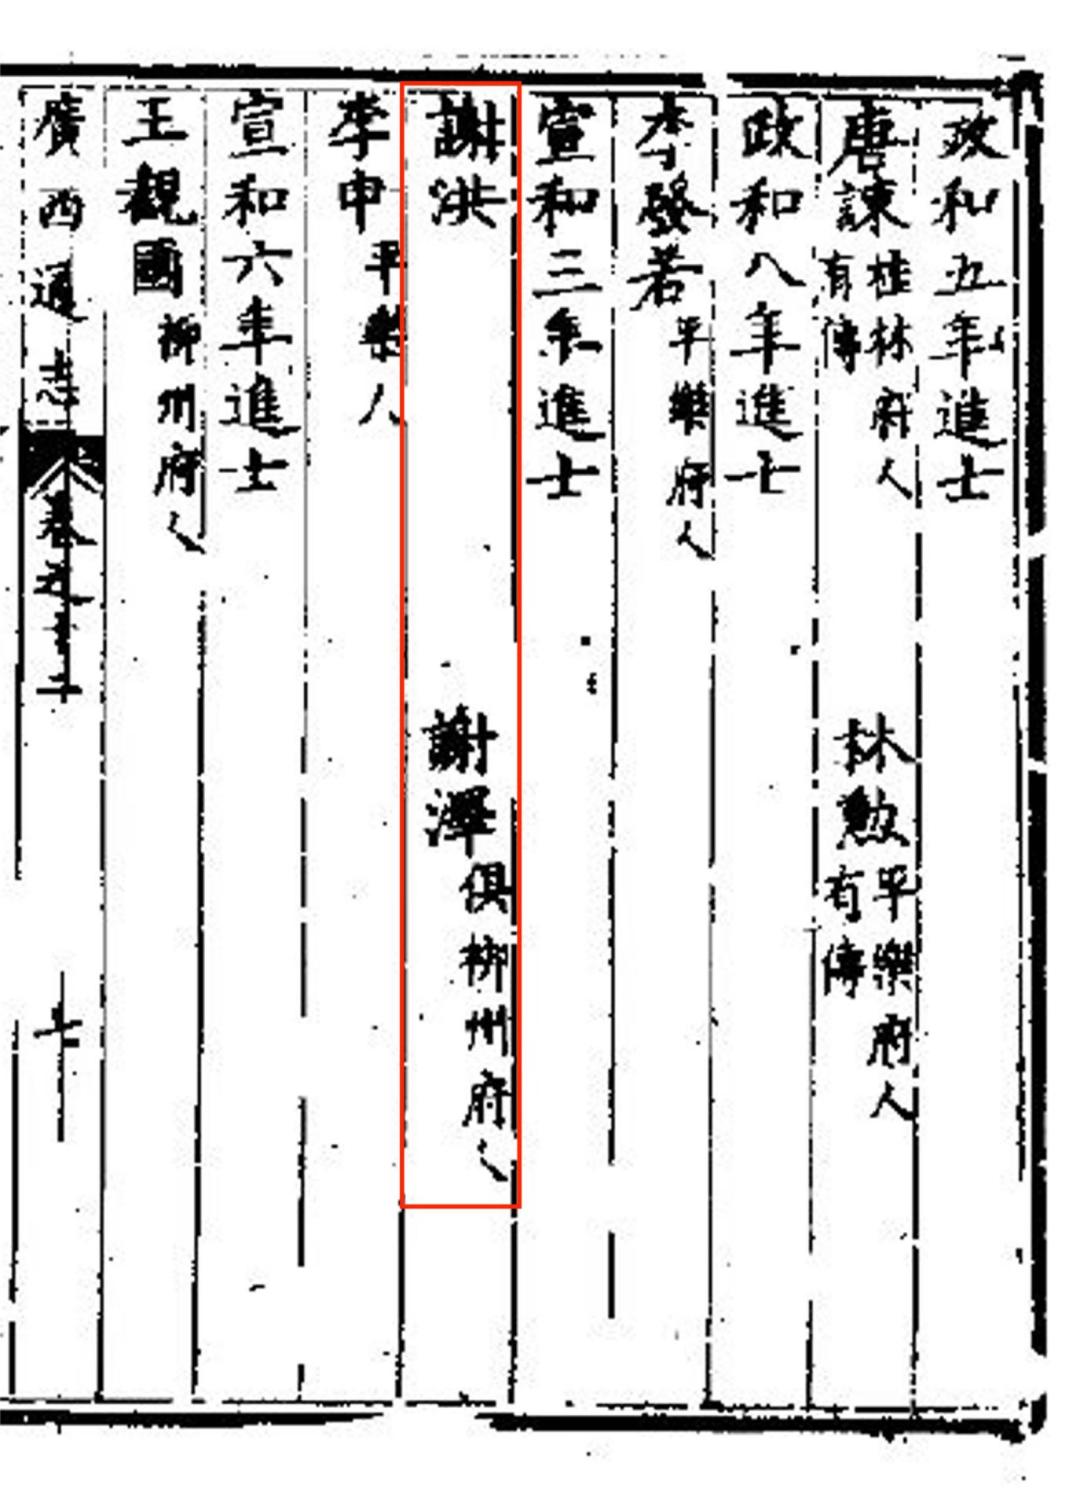 政和五年進士
唐諫桂林府人有傳
林勲平樂府人有傳
政和八年進士
李啓若平樂府人
宣和三年進士
謝洪
謝澤俱栁州府人
李申平樂人
宣和六年進士
王觀國栁州府人
廣西通志
卷五十二
七